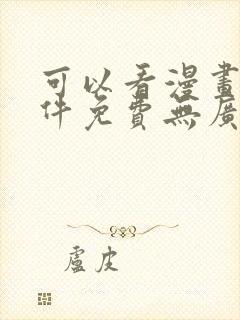 可以看漫畫
件免費無廣
盧皮